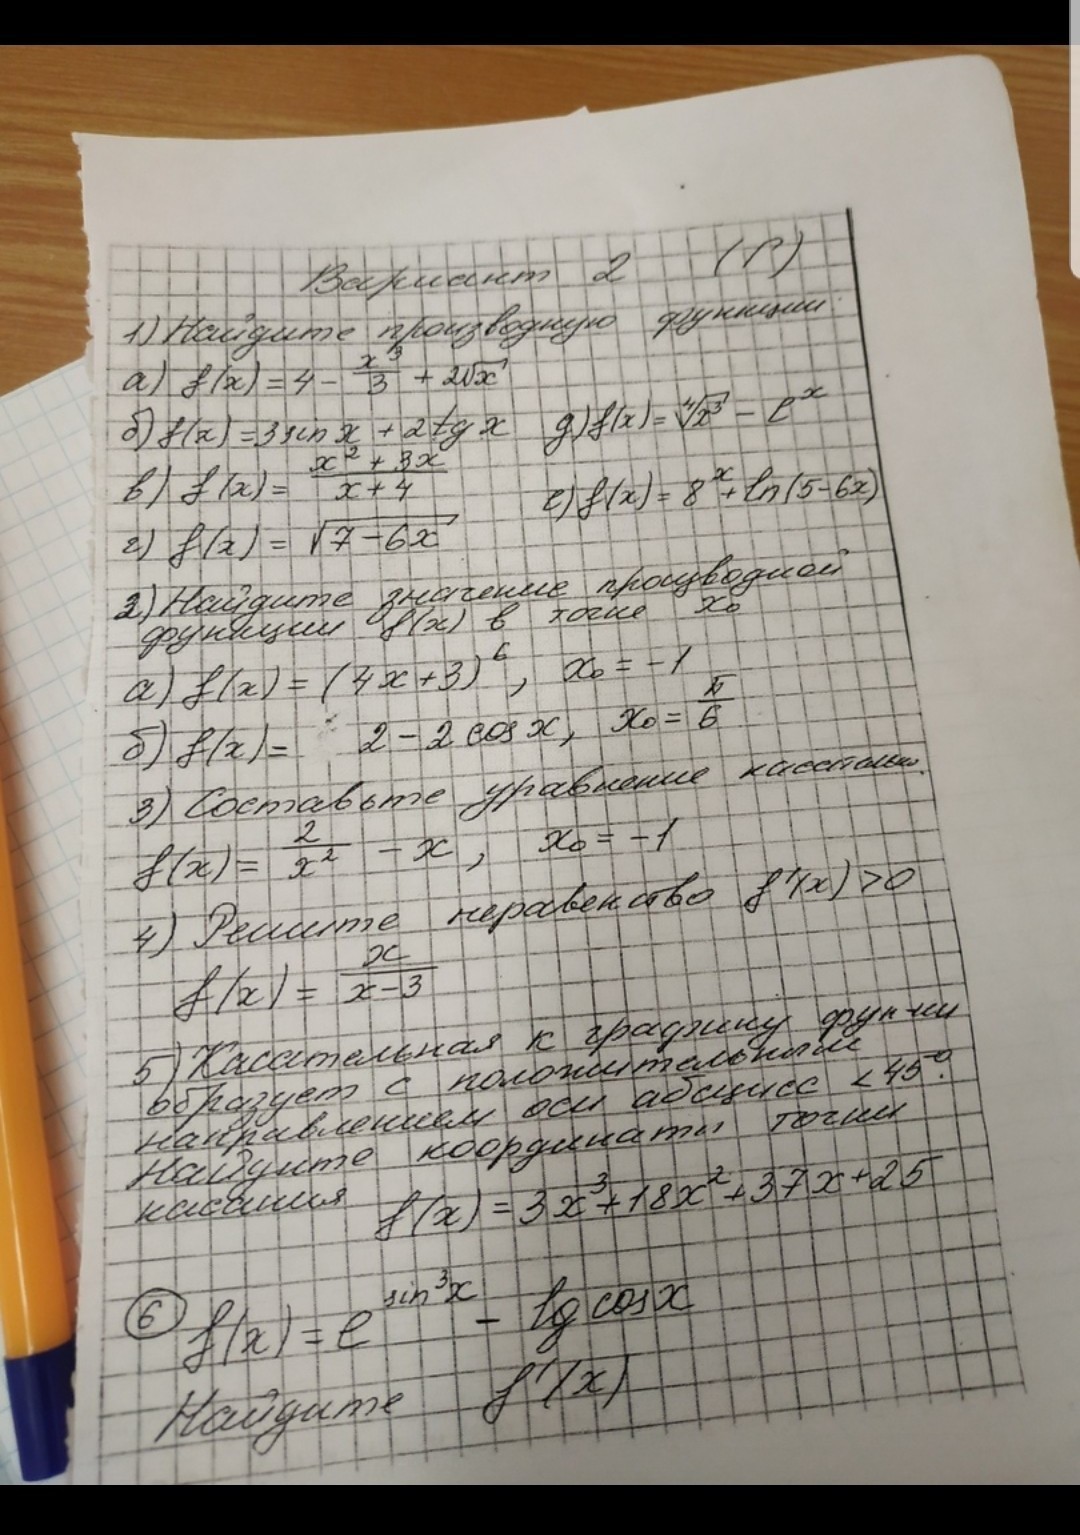 Вариант 2 (Г)
1) Найдите производную функции:
а) f(x) = 4 - x³/3 + 2√x
б) f(x) = 3 sin x + 2 tg x д) f(x) = ⁴√x³ - e^x
в) f(x) = (x² + 3x)/(x + 4) е) f(x) = 8^x + ln(5-6x)
г) f(x) = √(7-6x)
2) Найдите значение производной
функции f(x) в точке x₀
а) f(x) = (4x+3)⁶, x₀ = -1
б) f(x) = 2 - 2 cos x, x₀ = π/6
3) Составьте уравнение касательн.
f(x) = 2/x² - x, x₀ = -1
4) Решите неравенство f'(x) > 0
f(x) = x/(x-3)
5) Касательная к графику функ-ии
образует с положительным
направлением оси абсцисс < 45°.
Найдите координаты точки
касания f(x) = 3x³+18x²+37x+25
6 f(x) = e^(sin³x) - lg cos x
Найдите f'(x)